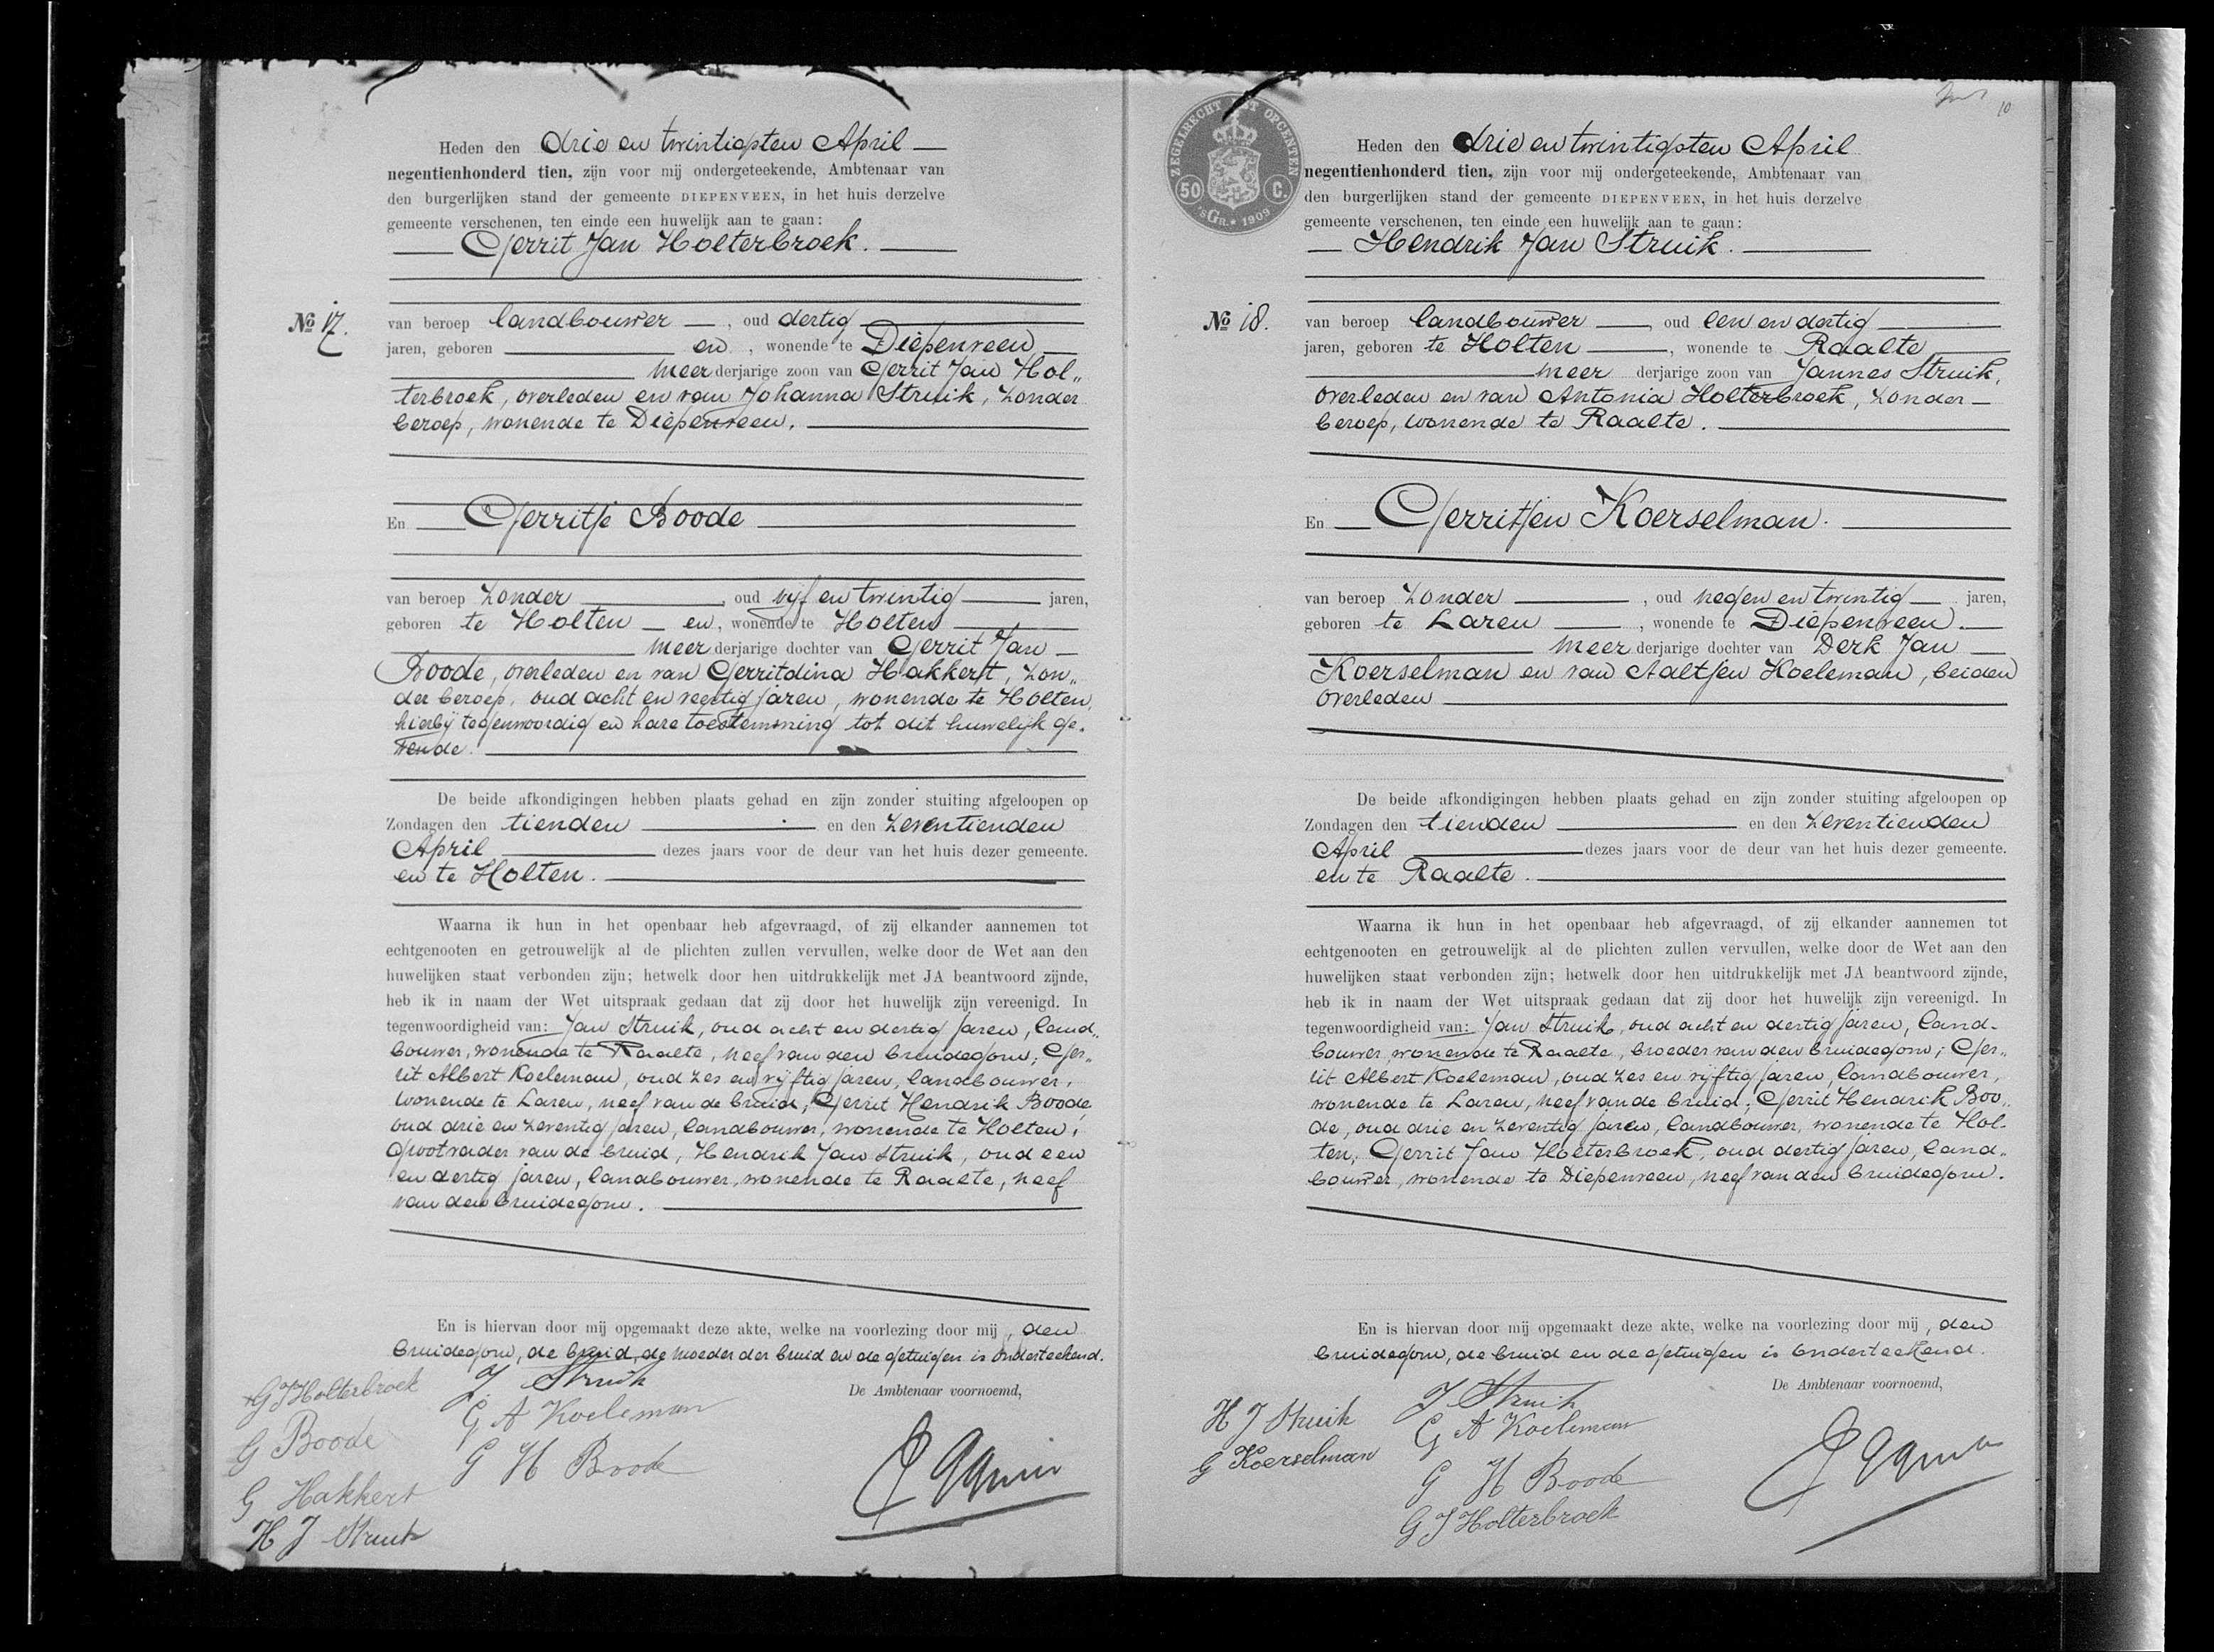 Heden den drie en twintigsten April
negentienhonderd tien, zijn voor mij ondergeteekende, Ambtenaar van
den burgerlijken stand der gemeente DIEPENVEEN, in het huis derzelve
gemeente verschenen, ten einde een huwelijk aan te gaan:
Gerrit Jan Holterbroek.
No 17.
van beroep landbouwer, oud dertig
jaren, geboren en, wonende te Diepenveen
meerderjarige zoon van Gerrit Jan Hol„
terbroek, overleden en van Johanna Struik, zonder
beroep, wonende te Diepenveen.
En Gerritje Boode
van beroep zonder, oud vijf en twintig jaren,
geboren te Holten en, wonende te Holten
meerderjarige dochter van Gerrit Jan
Boode, overleden en van Gerritdina Hakkert, zon„
der beroep, oud acht en veertig jaren, wonende te Holten,
hierbij tegenwoordig en hare toestemming tot dit huwelijk ge„
vende.
De beide afkondigingen hebben plaats gehad en zijn zonder stuiting afgeloopen op
Zondagen den tienden en den zeventienden
April dezes jaars voor de deur van het huis dezer gemeente.
en te Holten.
Waarna ik hun in het openbaar heb afgevraagd, of zij elkander aannemen tot
echtgenooten en getrouwelijk al de plichten zullen vervullen, welke door de Wet aan den
huwelijken staat verbonden zijn; hetwelk door hen uitdrukkelijk met JA beantwoord zijnde,
heb ik in naam der Wet uitspraak gedaan dat zij door het huwelijk zijn vereenigd. In
tegenwoordigheid van: Jan Struik, oud acht en dertig jaren, land„
bouwer, wonende te Raalte, neef van den bruidegom; Ger„
rit Albert Koeleman, oud zes en vijftig jaren, landbouwer,
wonende te Laren, neef van de bruid, Gerrit Hendrik Boode
oud drie en zeventig jaren, landbouwer, wonende te Holten,
grootvader van de bruid, Hendrik Jan Struik, oud een
en dertig jaren, landbouwer, wonende te Raalte, neef
van den bruidegom.
En is hiervan door mij opgemaakt deze akte, welke na voorlezing door mij, den
bruidegom, de bruid, de moeder der bruid en de getuigen is onderteekend.
De Ambtenaar voornoemd,
GJHolterbroek
G Boode
G Hakkert
H J Struik
J. Struik
G A Koeleman
G H Boode
10
ZEGELRECHT MET OPCENTEN
50 C.
'sGR. 1909
Heden den drie en twintigsten April
negentienhonderd tien, zijn voor mij ondergeteekende, Ambtenaar van
den burgerlijken stand der gemeente DIEPENVEEN, in het huis derzelve
gemeente verschenen, ten einde een huwelijk aan te gaan:
Hendrik Jan Struik.
No 18.
van beroep landbouwer, oud een en dertig
jaren, geboren te Holten, wonende te Raalte
meerderjarige zoon van Jannes Struik,
overleden en van Antonia Holterbroek, zonder
beroep, wonende te Raalte.
En Gerritjen Koerselman.
van beroep zonder, oud negen en twintig jaren,
geboren te Laren, wonende te Diepenveen.
meerderjarige dochter van Derk Jan
Koerselman en van Aaltjen Koeleman, beiden
overleden
De beide afkondigingen hebben plaats gehad en zijn zonder stuiting afgeloopen op
Zondagen den tienden en den zeventienden
April dezes jaars voor de deur van het huis dezer gemeente.
en te Raalte.
Waarna ik hun in het openbaar heb afgevraagd, of zij elkander aannemen tot
echtgenooten en getrouwelijk al de plichten zullen vervullen, welke door de Wet aan den
huwelijken staat verbonden zijn; hetwelk door hen uitdrukkelijk met JA beantwoord zijnde,
heb ik in naam der Wet uitspraak gedaan dat zij door het huwelijk zijn vereenigd. In
tegenwoordigheid van: Jan Struik, oud acht en dertig jaren, land-
bouwer, wonende te Raalte, broeder van den bruidegom; Ger„
rit Albert Koeleman, oud zes en vijftig jaren, landbouwer,
wonende te Laren, neef van de bruid; Gerrit Hendrik Boo„
de, oud drie en zeventig jaren, landbouwer, wonende te Hol-
ten, Gerrit Jan Holterbroek, oud dertig jaren, land„
bouwer, wonende te Diepenveen, neef van den bruidegom.
En is hiervan door mij opgemaakt deze akte, welke na voorlezing door mij, den
bruidegom, de bruid en de getuigen is onderteekend.
De Ambtenaar voornoemd,
H J Struik
G Koerselman
J Struik
G A Koeleman
G H Boode
G J Holterbroek